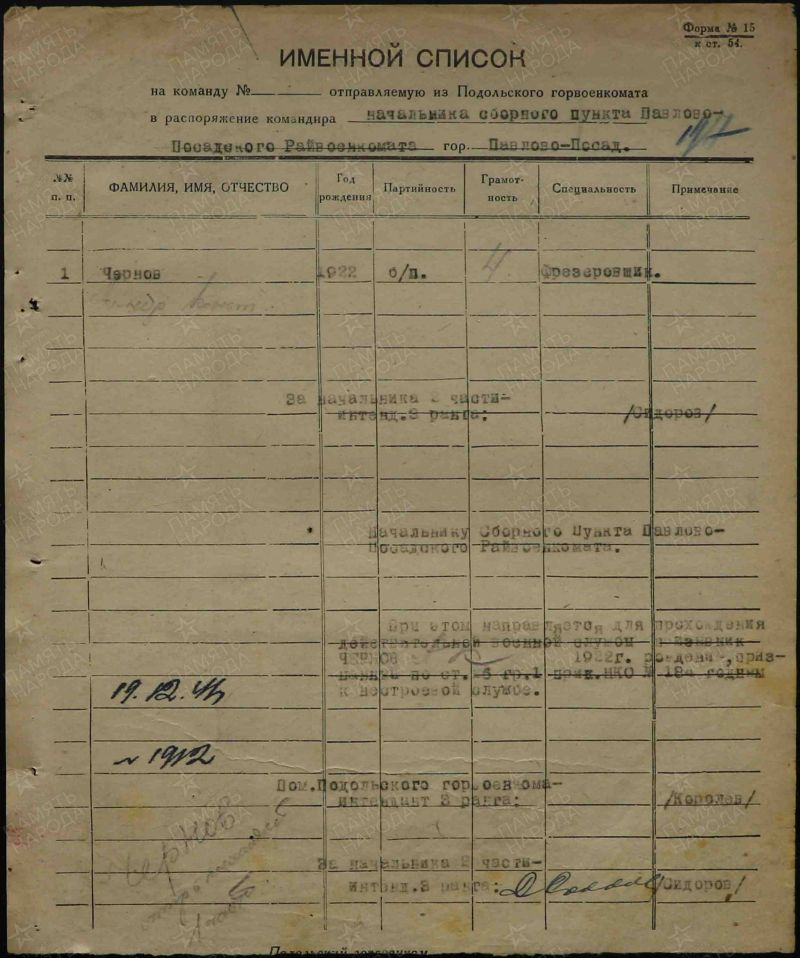 Форма № 15
к ст. 54.
ИМЕННОЙ СПИСОК
на команду № отправляемую из Подольского горвоенкомата
в распоряжение командира начальника сборного пункта Павлово-
Посадского Райвоенкомата гор. Павлово-Посад.
№№ п. п. ФАМИЛИЯ, ИМЯ, ОТЧЕСТВО Год рождения Партийность Грамотность Специальность Примечание
1 Чернов 1922 б/п. 4 Фрезеровщик.
За начальника 2 части-
интенд.3 ранга: /Сидоров/
Начальнику Сборного Пункта Павлово-
Посадского Райвоенкомата.
При этом направляется для прохождения
действительной военной службы
ЧЕРНОВ 1922г. приз-
по ст. гр.1 НКО № 184 годным
к нестроевой службе.
19.12.41
1912
Пом.Подольского горвоенкома-
интендант 3 ранга: /Королев/
Чернов
За начальника 2 части-
интенд.3 ранга: /Сидоров/
Подольский горвоенком